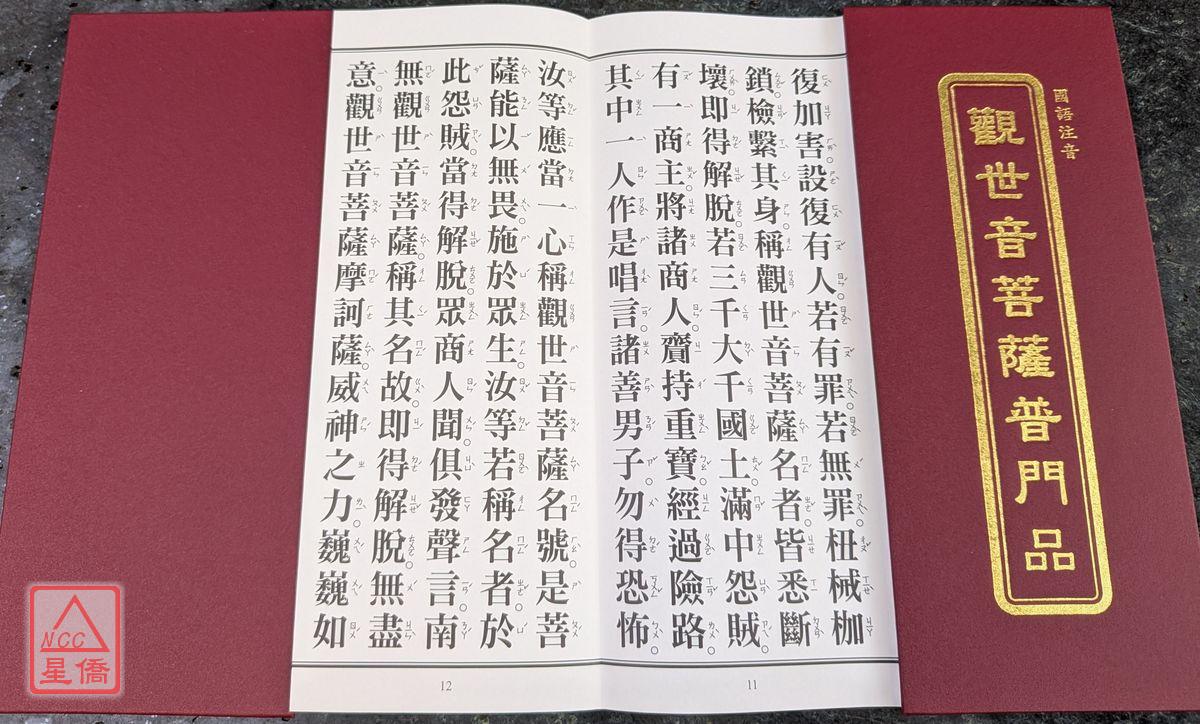 國語注音
觀世音菩薩普門品
復加害。設復有人。若有罪。若無罪。杻械枷
鎖檢繫其身。稱觀世音菩薩名者。皆悉斷
壞。即得解脫。若三千大千國土。滿中怨賊。
有一商主。將諸商人。齎持重寶。經過險路。
其中一人作是唱言。諸善男子。勿得恐怖。
11
汝等應當一心稱觀世音菩薩名號。是菩
薩能以無畏。施於眾生。汝等若稱名者。於
此怨賊。當得解脫。眾商人聞。俱發聲言。南
無觀世音菩薩。稱其名故。即得解脫。無盡
意。觀世音菩薩摩訶薩。威神之力。巍巍如
12
NCC
星僑